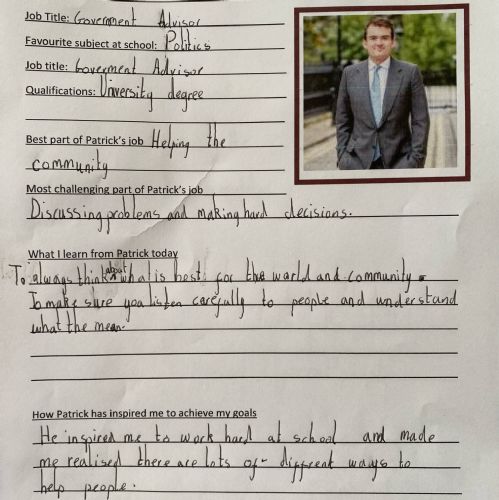 Job Title: Government Advisor
Favourite subject at school: Politics
Job title: Goverment Advisor
Qualifications: University degree
Best part of Patrick's job Helping the
community
Most challenging part of Patrick's job
Discussing problems and making hard decisions.
What I learn from Patrick today
To always think about what is best for the world and community.
To make sure you listen carefully to people and understand
what the mean.
How Patrick has inspired me to achieve my goals
He inspired me to work hard at school and made
me realised there are lots of different ways to
help people.